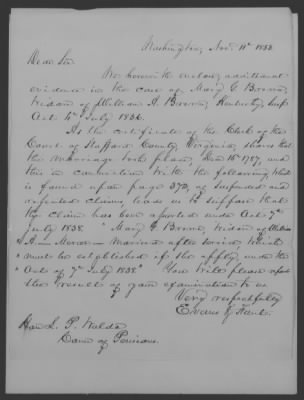 Washington, Nov. 11th 1853
Dear Sir
We herewith enclose additional
evidence in the case of Mary G. Brown,
widow of William A. Brown, Kentucky,
Act 4th July 1836.
As the certificate of the Clerk of the
Court of Stafford County, Virginia, shows that
the marriage took place, Dec 16th 1787, and
this in connection with the following, which
is found upon page 372, of suspended and
rejected claims, leads us to suppose that
the claim has been rejected under Act 7th
July 1838. "Mary G. Brown, widow of William
A. — Married after service, which
must be established if she apply, under the
Act of 7th July 1838." You will please report
the result of your examination to us
Very respectfully
Hon L. P. Waldo
Com of Pensions.